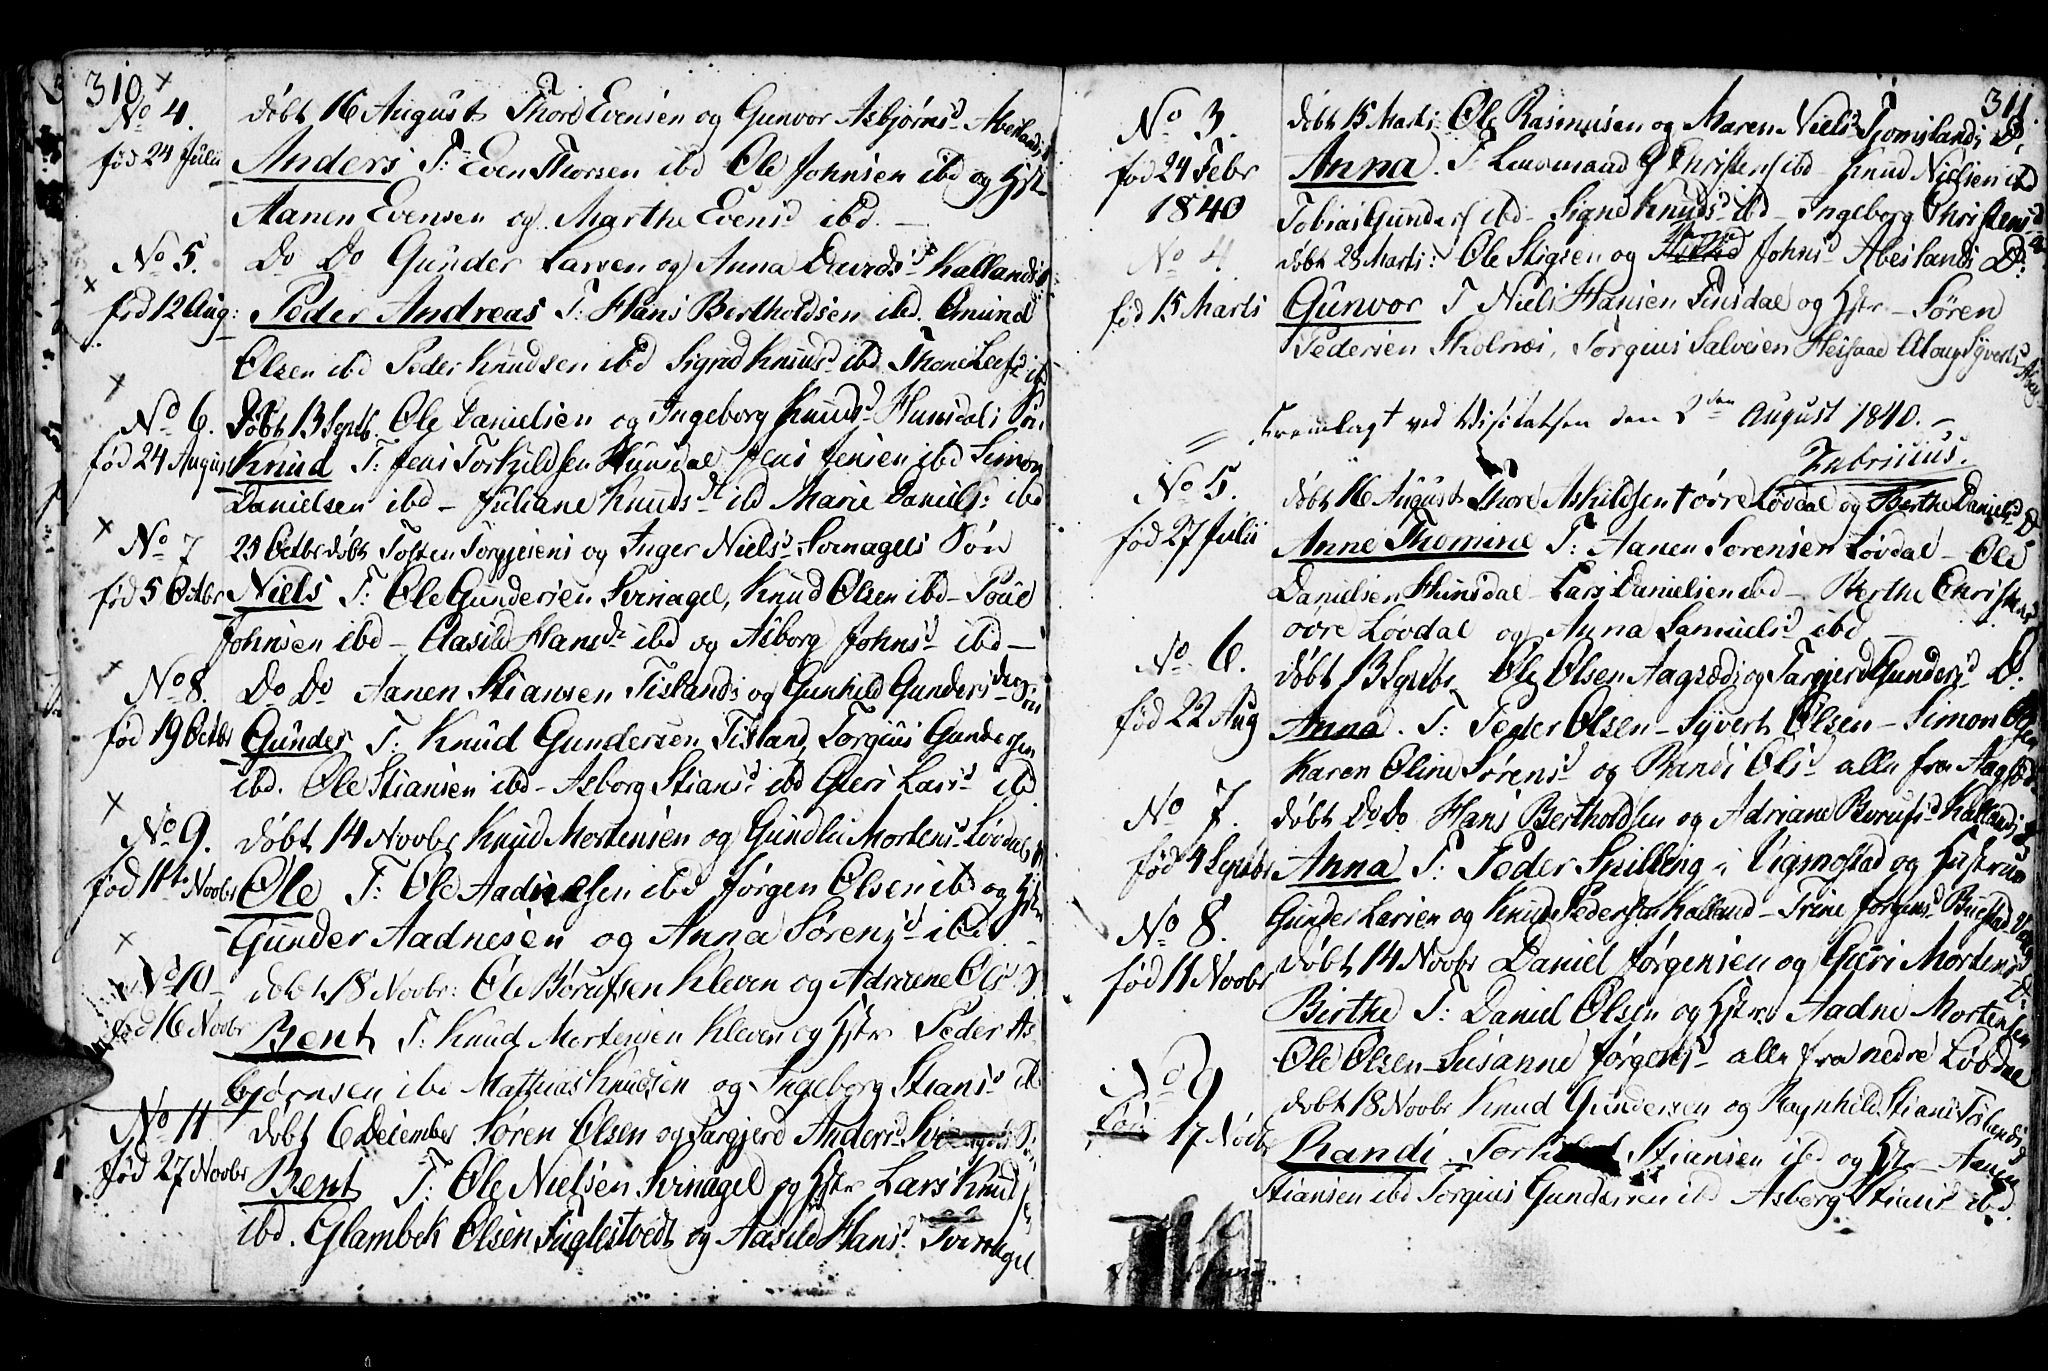 310
No 4.
fød 24 Julii
døbt 16 August Thore Evensen og Gunvor Asbjørnsd Abeslands
Anders T: Even Thorsen ibd Ole Johnsen ibd og Hstr
Aanen Evensen og Marthe Evensd ibd. —
No 5.
fød 12 Aug:
Do Do Gunder Larsen og Anna Davidsd Kallands
Peder Andreas T: Hans Bertholdsen ibd. Omund
Olsen ibd Peder Knudsen ibd Sigrid Knudsd ibd Thone
No 6.
fød 24 August
Døbt 13 Septb. Ole Danielsen og Ingeborg Knudsd Hunsdals Søn
Knud T: Jens Torkildsen Hunsdal Jens Jensen ibd Simon
Danielsen ibd – Juliane Knudsd ibd Marie Danielsd: ibd
No 7
fød 5 Octbr
25 Octbr døbt Tosten Torgjesens og Inger Nielsd Svinagels Søn
Niels T: Ole Gundersen Svinagel, Knud Olsen ibd – Poul
Johnsen ibd – Aasild Hansd ibd og Asborg Johnsd ibd —
No 8.
fød 19 Octbr
Do Do Aanen Stiansen Tislands og Gunhild Gundersd Søn
Gunder T: Knud Gundersen Tisland, Torgius Gundersen
ibd. Ole Stiansen ibd – Asborg Stiansd ibd Guri Larsd ibd
No 9.
fød 11te Novbr
døbt 14 Novbr Knud Mortensen og Gundlu Mortensd Løvdals
Ole T: Ole Aadnesen ibd Jørgen Olsen ibd og Hstr
Gunder Aadnesen og Anna Sørensd ibd. –
No 10
fød 16 Novbr
døbt 18 Novbr: Ole Børufsen Kleven og Adriane Olsd
Bent T: Knud Mortensen Kleven og Hstr Peder As-
bjørnsen ibd Mathias Knudsen og Ingeborg Stiansd ibd
No 11
fød 27 Novbr
døbt 6 December Søren Olsen og Targjerd Andersd
Bent T: Ole Nielsen Svinagel og Hstr Lars Knuds
ibd. Glambek Olsen Fuglestvedt og Aasild Hansd Svinagel
311
No 3.
fød 24 Febr
1840
døbt 15 Marti: Ole Rasmusen og Maren Nielsd Tjomslands D.
Anna. T. Lensmand G Christens ibd – Knud Nielsen ibd
Tobias Gunders ibd – Signe Knudsd ibd – Ingeborg Christensd
No 4
fød 15 Marti
døbt 28 Marti: Ole Stigsen og Johnsd Abeslands D:
Gunvor T Niels Hansen Tinsdal og Hstr – Søren
Pedersen Skolnes, Torgius Salvesen Heisaae Sÿvertsd
Fremlagt ved Visitatsen den 2den August 1840. –
Fabricius.
No 5.
fød 27 Julii
døbt 16 August Thore Askildsen øvre Løvdal og Berthe Danielsd D.
Anne Thomine T: Aanen Sorensen Løvdal – Ole
Danielsen Hunsdal – Lars Danielsen ibd – Berthe Christensd
øvre Løvdal og Anna Samuelsd ibd –
No 6.
fød 22 Aug
døbt 13 Septbr Ole Olsen Aagsæds og Targjerd Gundersd D.
Anna. T: Peder Olsen – Sÿvert Olsen – Simon Olsen
Karen Oline Sørensd og Randi Olsd alle fra Aagsæd
No 7.
fød 4 Septbr
døbt Do Do Hans Bertholdsen og Adriane Børufsd Kallands
Anna T: Peder Spilling i Vigmostad og Hustrue
Gunder Larsen og Knud Peders Kalland – Trine Jørgensd Buestad
No 8.
fød 11 Novbr
døbt 14 Novbr Daniel Jørgensen og Guri Mortensd D:
Birthe T: Daniel Olsen og Hstr. Aadne Mortensen
Ole Olsen – Susanne Jørgensd – alle fra nedre Løvdal
No 9
fød 17 Novbr
døbt 18 Novbr Knud Gundersen og Raynhild Stiansd Tislands
Randi. Stiansen ibd og Hstr – Aanen
Stiansen ibd Torgius Gundersen ibd Asberg Stiansd ibd.